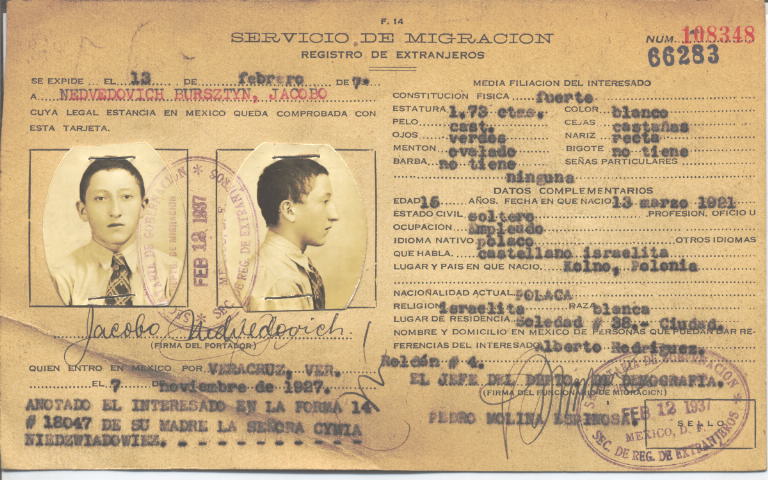 F. 14
SERVICIO DE MIGRACION
REGISTRO DE EXTRANJEROS
NUM. 108348
66283
SE EXPIDE EL 13 DE febrero DE 7*
A NEDVEDOVICH BURSZTYN, JACOBO
CUYA LEGAL ESTANCIA EN MEXICO QUEDA COMPROBADA CON
ESTA TARJETA.
Jacobo Nedvedovich
(FIRMA DEL PORTADOR)
QUIEN ENTRO EN MEXICO POR VERACRUZ, VER.
EL 7 noviembre de 1927.
ANOTADO EL INTERESADO EN LA FORMA 14
# 18047 DE SU MADRE LA SEÑORA CYWIA
NIEDZWIADOWIEZ. - - - - - - - - - -
MEDIA FILIACION DEL INTERESADO
CONSTITUCION FISICA fuerte
ESTATURA 1,73 ctms. COLOR blanco
PELO cast. CEJAS castañas
OJOS verdes NARIZ recta
MENTON ovalado BIGOTE no tiene
BARBA no tiene SEÑAS PARTICULARES
ninguna
DATOS COMPLEMENTARIOS
EDAD 15 AÑOS. FECHA EN QUE NACIO 13 marzo 1921
ESTADO CIVIL soltero PROFESION, OFICIO U
OCUPACION Empleado
IDIOMA NATIVO polaco OTROS IDIOMAS
QUE HABLA. castellano israelita
LUGAR Y PAIS EN QUE NACIO. Kolno, Polonia
NACIONALIDAD ACTUAL POLACA
RELIGION israelita RAZA blanca
LUGAR DE RESIDENCIA Soledad # 38.- Ciudad.
NOMBRE Y DOMICILIO EN MEXICO DE PERSONAS QUE PUEDAN DAR RE-
FERENCIAS DEL INTERESADO Alberto Rodriguez.
Roldán # 4.
EL JEFE DEL DEPTO. DE DEMOGRAFIA.
(FIRMA DEL FUNCIONARIO DE MIGRACION)
PEDRO MOLINA ESPINOSA.
SELLO
SECRETARIA DE GOBERNACION
FEB 12 1937
MEXICO, D. F.
SEC. DE REG. DE EXTRANJEROS